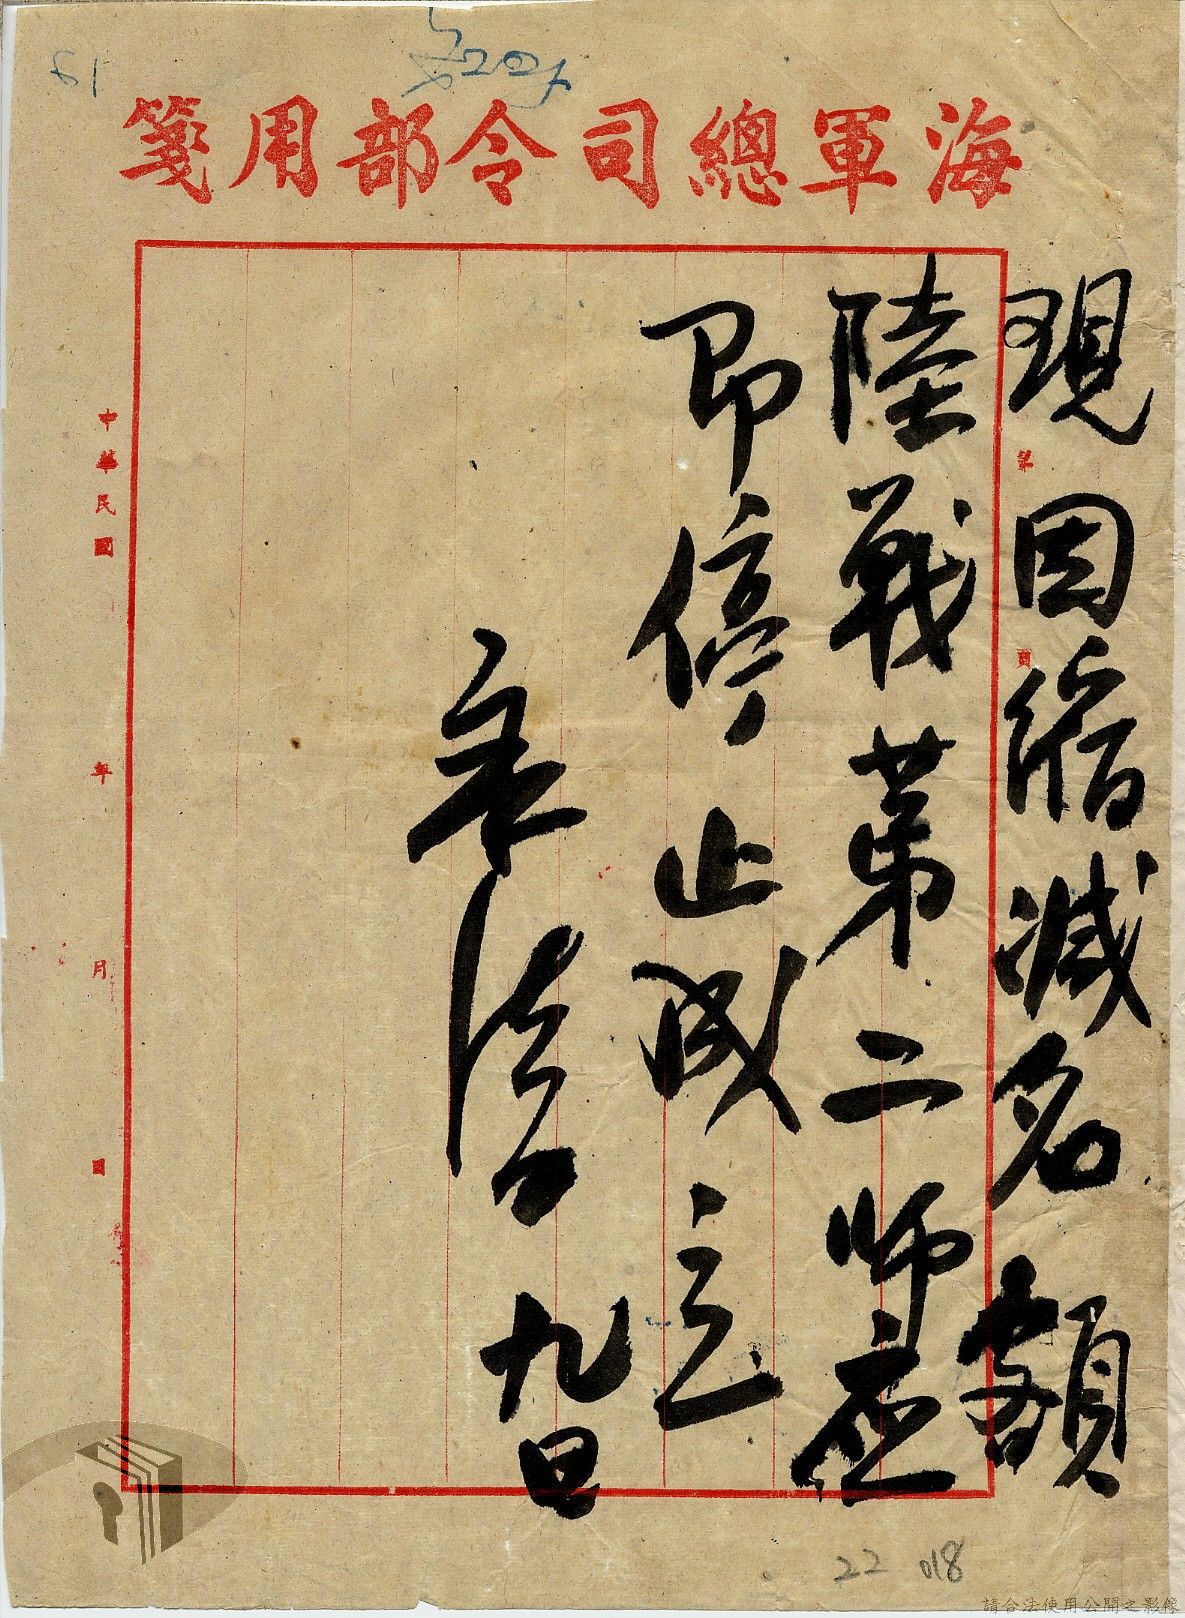 海軍總司令部用箋
現因縮減名額
陸戰第二師應
即停止成立
永清
九日
中華民國 年 月 日
22 018
61
請合法使用公開之影像